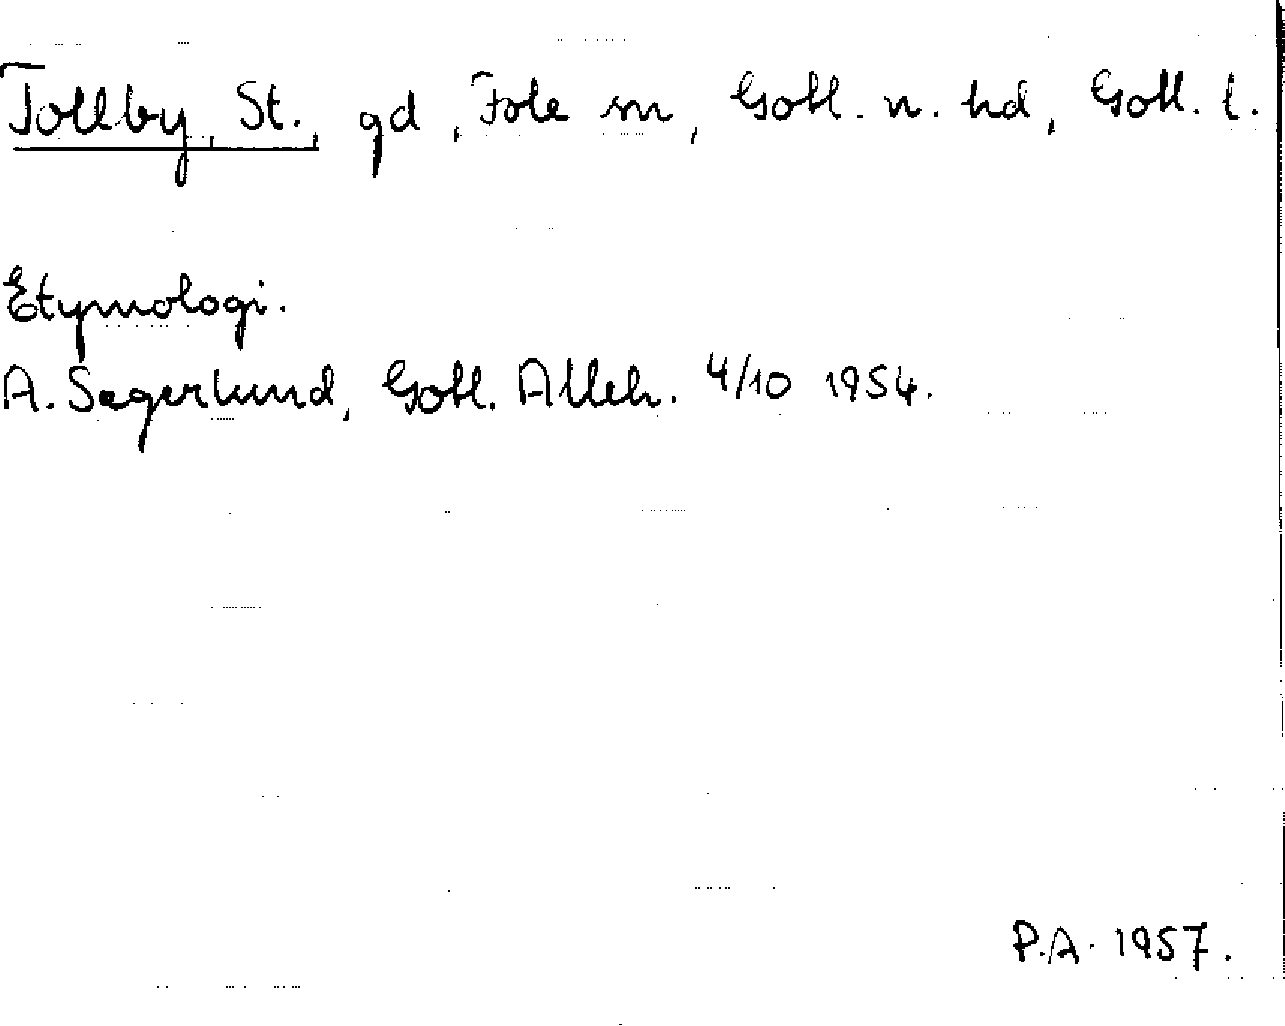 Tollby, St., gd, Fole sn, Gotl. n. hd, Gotl. l.
Etymologi.
A. Sagerlund, Gotl. Alleh. 4/10 1954.
P.A. 1957.